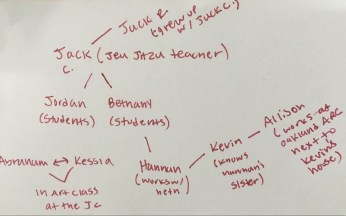 Jack R.
(grew up
w/ Jack C.)
Jack (Jeu Jitzu teacher)
C.
Jordan
(students)
Bethany
(students)
Allison
(works at
Oakland ARC
next to
Kevin's
hose)
Kevin
(knows
Hannah's
sister)
Abraham ↔ Kessia
Hannah
(works w/
Beth)
in Art class
at the Jc